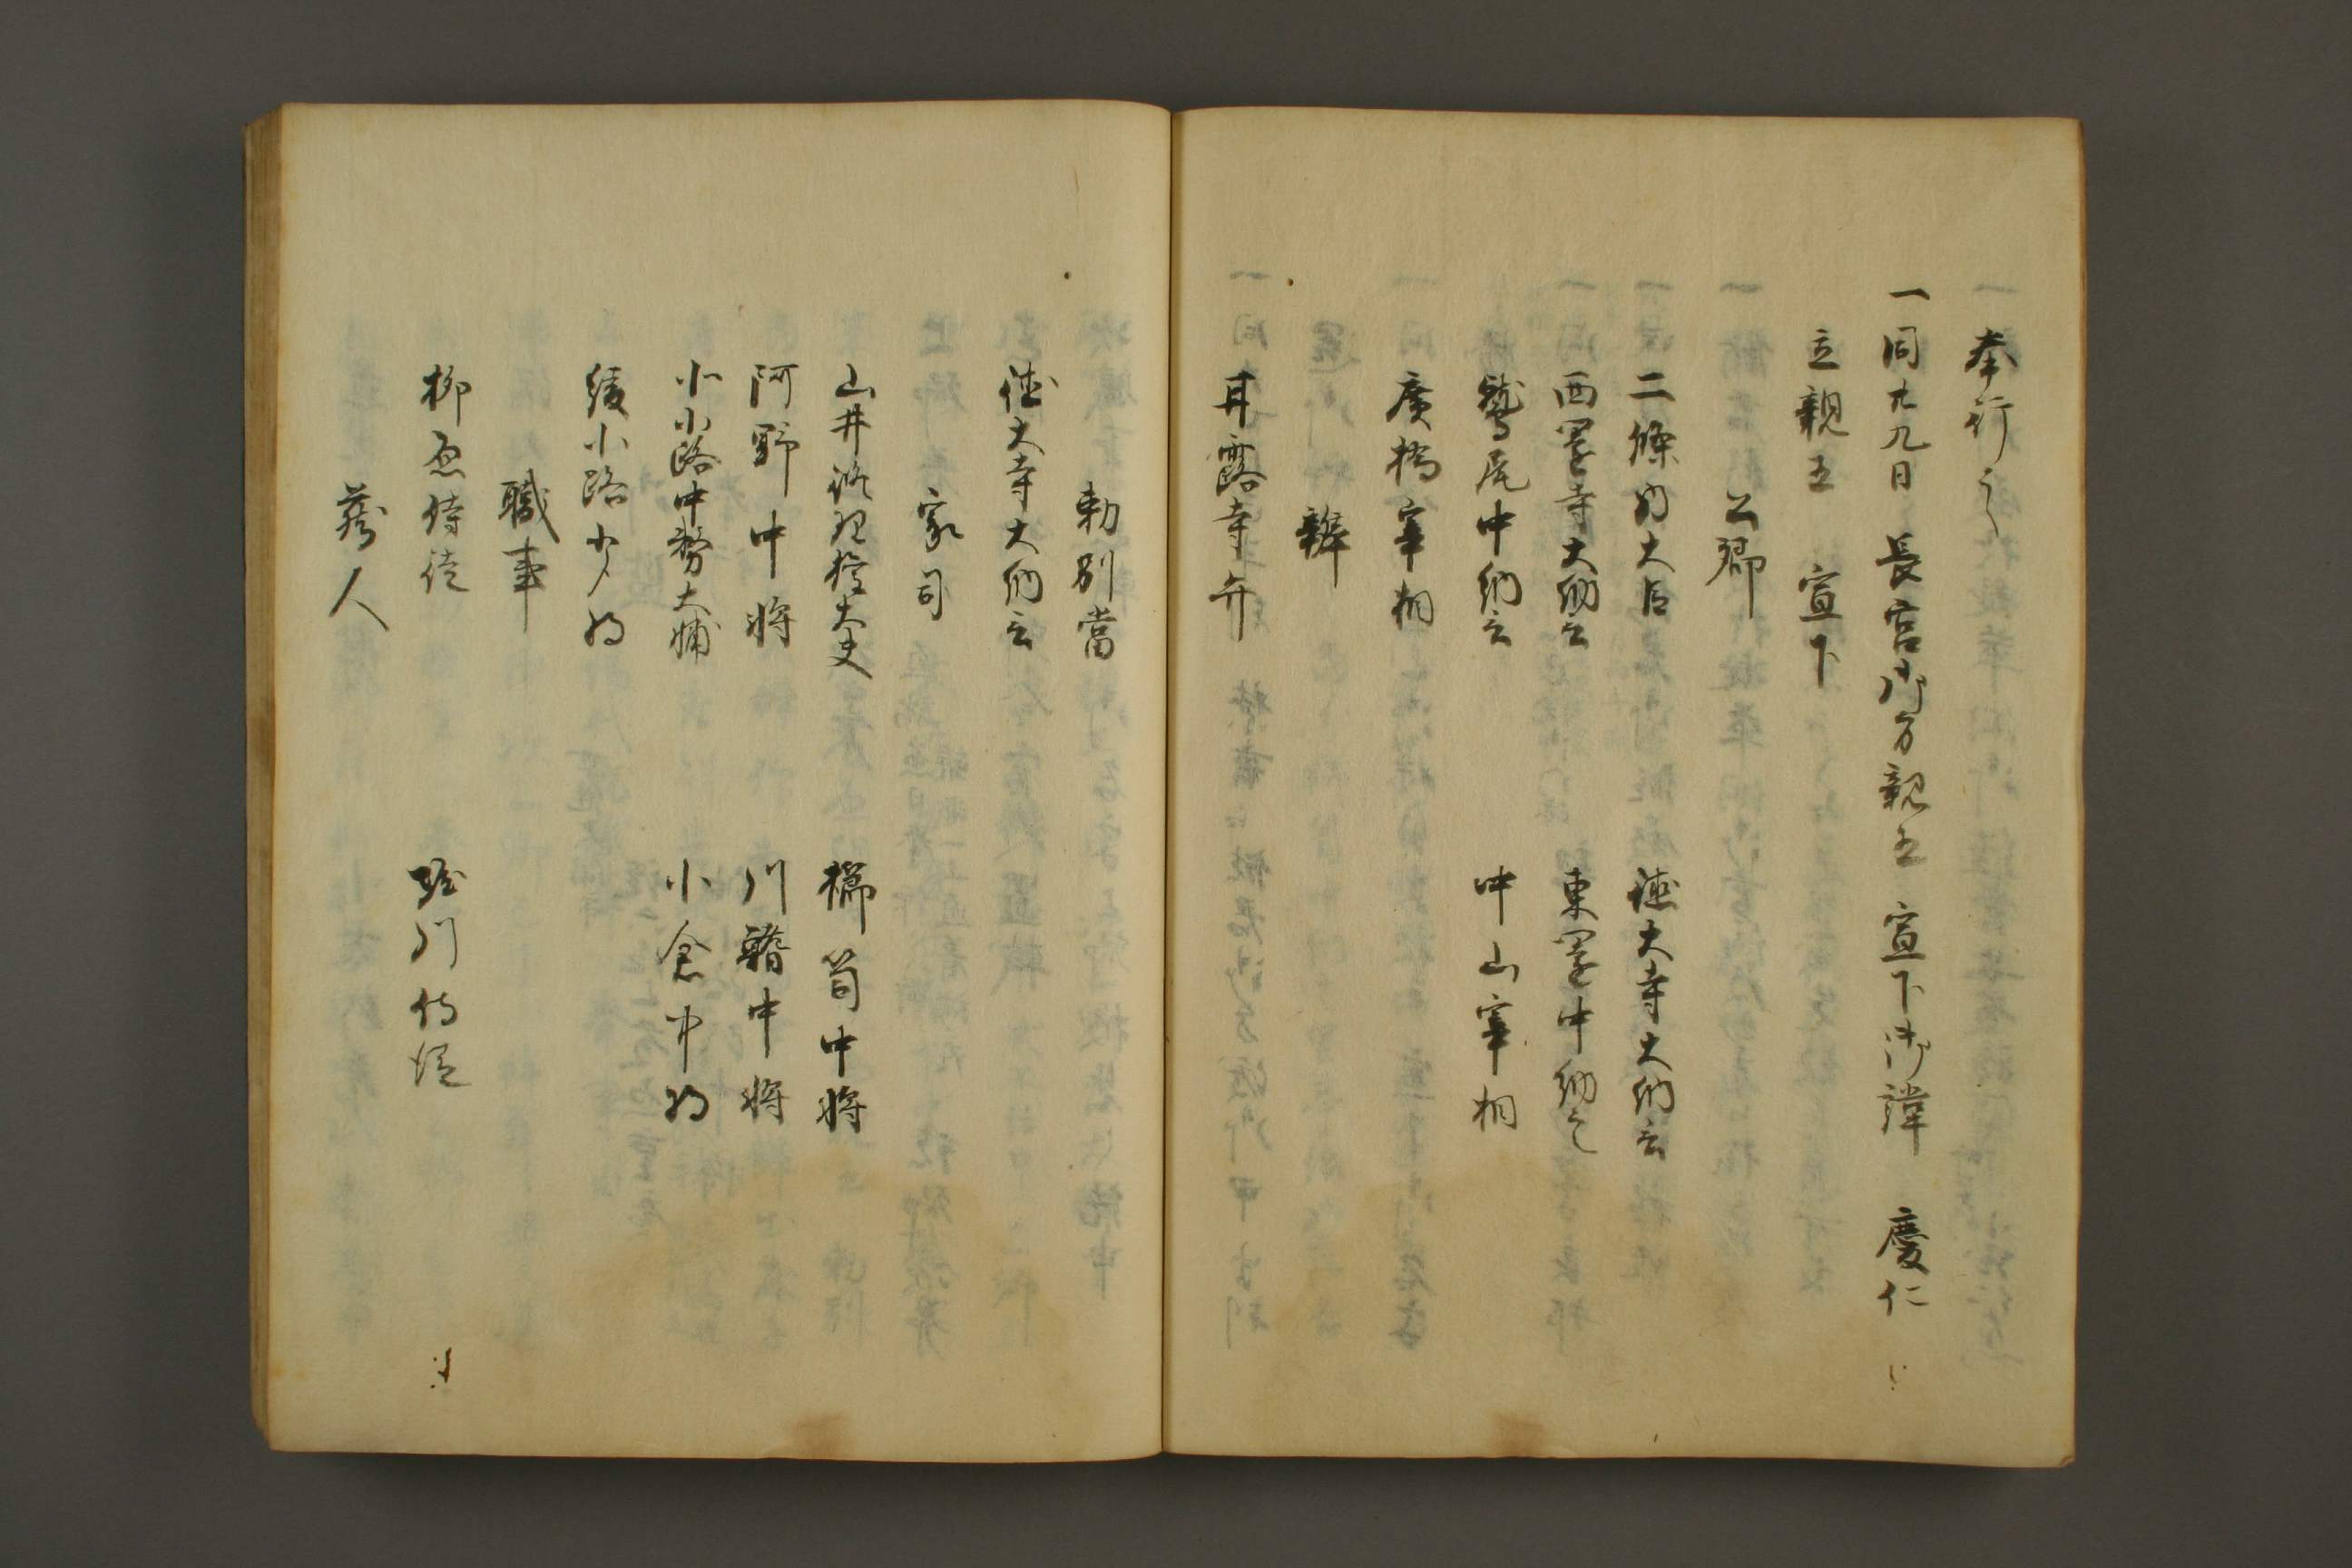 奉行之
一同廿九日 長宮御方親王 宣下御諱 慶仁
立親王 宣下
公卿
二條内大臣 徳大寺大納言
西園寺大納言 東園中納言
鷲尾中納言 中山宰相
廣橋宰相
辨
甘露寺弁
勅別當
徳大寺大納言
家司
山井修理権大夫 櫛笥中将
阿野中将 川鰭中将
北小路中務大輔 小倉中将
綾小路少将
職事
柳原侍従 侍従
蔵人